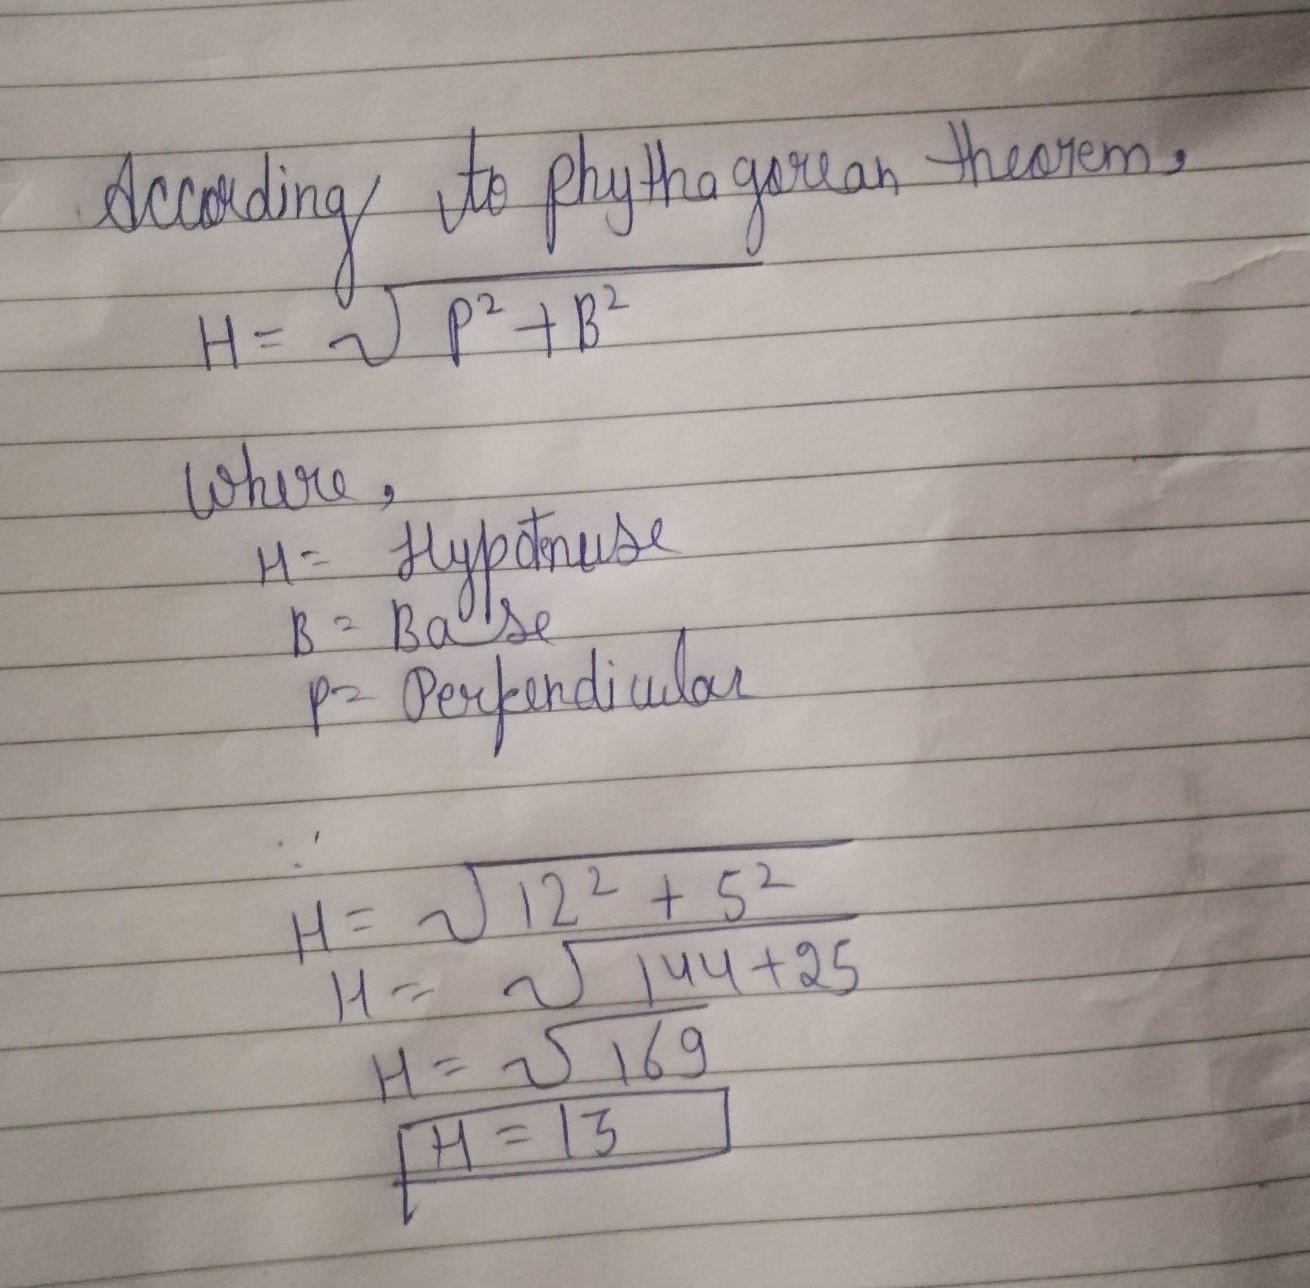 According to phythagorean theorem,
H = √P² + B²
Where,
H = Hypotenuse
B = Base
P = Perpendicular
∴
H = √12² + 5²
H = √144+25
H = √169
H = 13